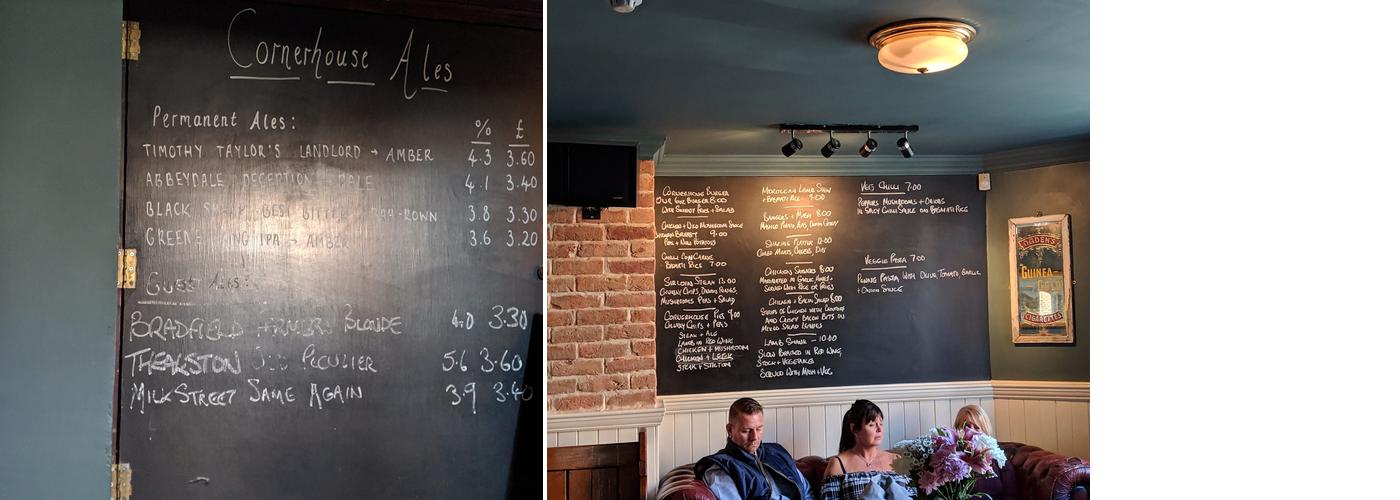 Cornerhouse Ales
Permanent Ales:
% £
TIMOTHY TAYLOR'S LANDLORD → AMBER 4.3 3.60
ABBEYDALE DECEPTION PALE 4.1 3.40
BLACK BEST BITTER 3.8 3.30
GREENE KING IPA → AMBER 3.6 3.20
Guest Ales:
BRADFIELD FARMER BLONDE 4.0 3.30
THEAKSTON OLD PECULIER 5.6 3.60
MILK STREET SAME AGAIN 3.9 3.40
CORNERHOUSE BURGER
8.00
WITH SKINNY FRIES + SALAD
CHICKEN + WILD MUSHROOM SAUCE
9.00
PEAS + NEW POTATOES
CHILLI CON CARNE
BASMATI RICE 7.00
SIRLOIN STEAK 13.00
CHUNKY CHIPS, ONION RINGS,
MUSHROOMS PEAS + SALAD
CORNERHOUSE PIES 9.00
CHUNKY CHIPS + PEAS
STEAK + ALE
LAMB IN RED WINE
CHICKEN + MUSHROOM
CHICKEN + LEEK
STEAK + STILTON
MOROCCAN LAMB STEW
+ BASMATI RICE 9.00
BANGERS + MASH 8.00
MASHED POTATO, PEAS, ONION GRAVY
SHARING PLATTER 12.00
CURED MEATS, CHEESES, DIPS
CHICKEN SKEWERS 8.00
MARINATED IN GARLIC, HONEY
SERVED WITH RICE OR FRIES
CHICKEN + BACON SALAD 8.00
STRIPS OF CHICKEN WITH
AND CRISPY BACON BITS ON
MIXED SALAD LEAVES
LAMB SHANK 10.00
SLOW BRAISED IN RED WINE,
STOCK + VEGETABLES
SERVED WITH MASH + VEG
VEG CHILLI 7.00
PEPPERS MUSHROOMS + ONIONS
IN SPICY CHILLI SAUCE ON BASMATI RICE
VEGGIE PASTA 7.00
PENNE PASTA WITH OLIVE, TOMATO, GARLIC
+ ONION SAUCE
OGDEN'S
GUINEA-
GOLD
CIGARETTES